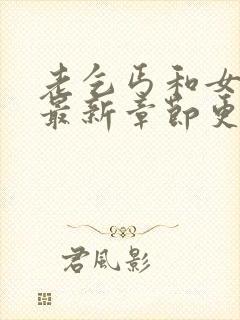 老乞丐和女
最新章节更
君风影